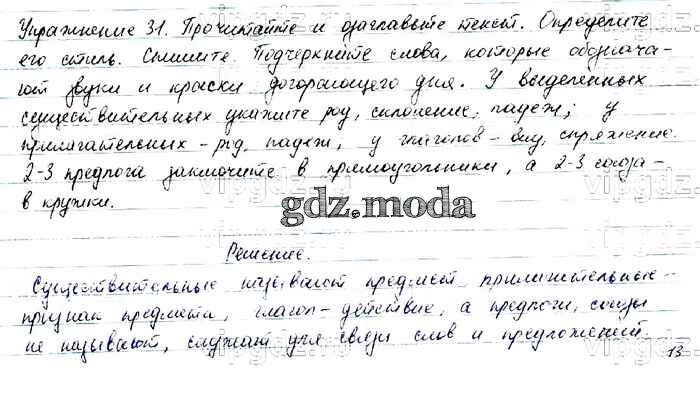 Упражнение 31. Прочитайте и озаглавьте текст. Определите
его стиль. Спишите. Подчеркните слова, которые обознача-
ют звуки и краски догорающего дня. У выделенных
существительных укажите род, склонение, падеж; у
прилагательных - род, падеж, у глаголов - вид, спряжение.
2-3 предлога заключите в прямоугольники, а 2-3 союза -
в кружки.
gdz.moda
Решение.
Существительные называют предмет, прилагательные -
признак предмета, глагол - действие, а предлоги, союзы
не называют, служат для связи слов и предложений.
13